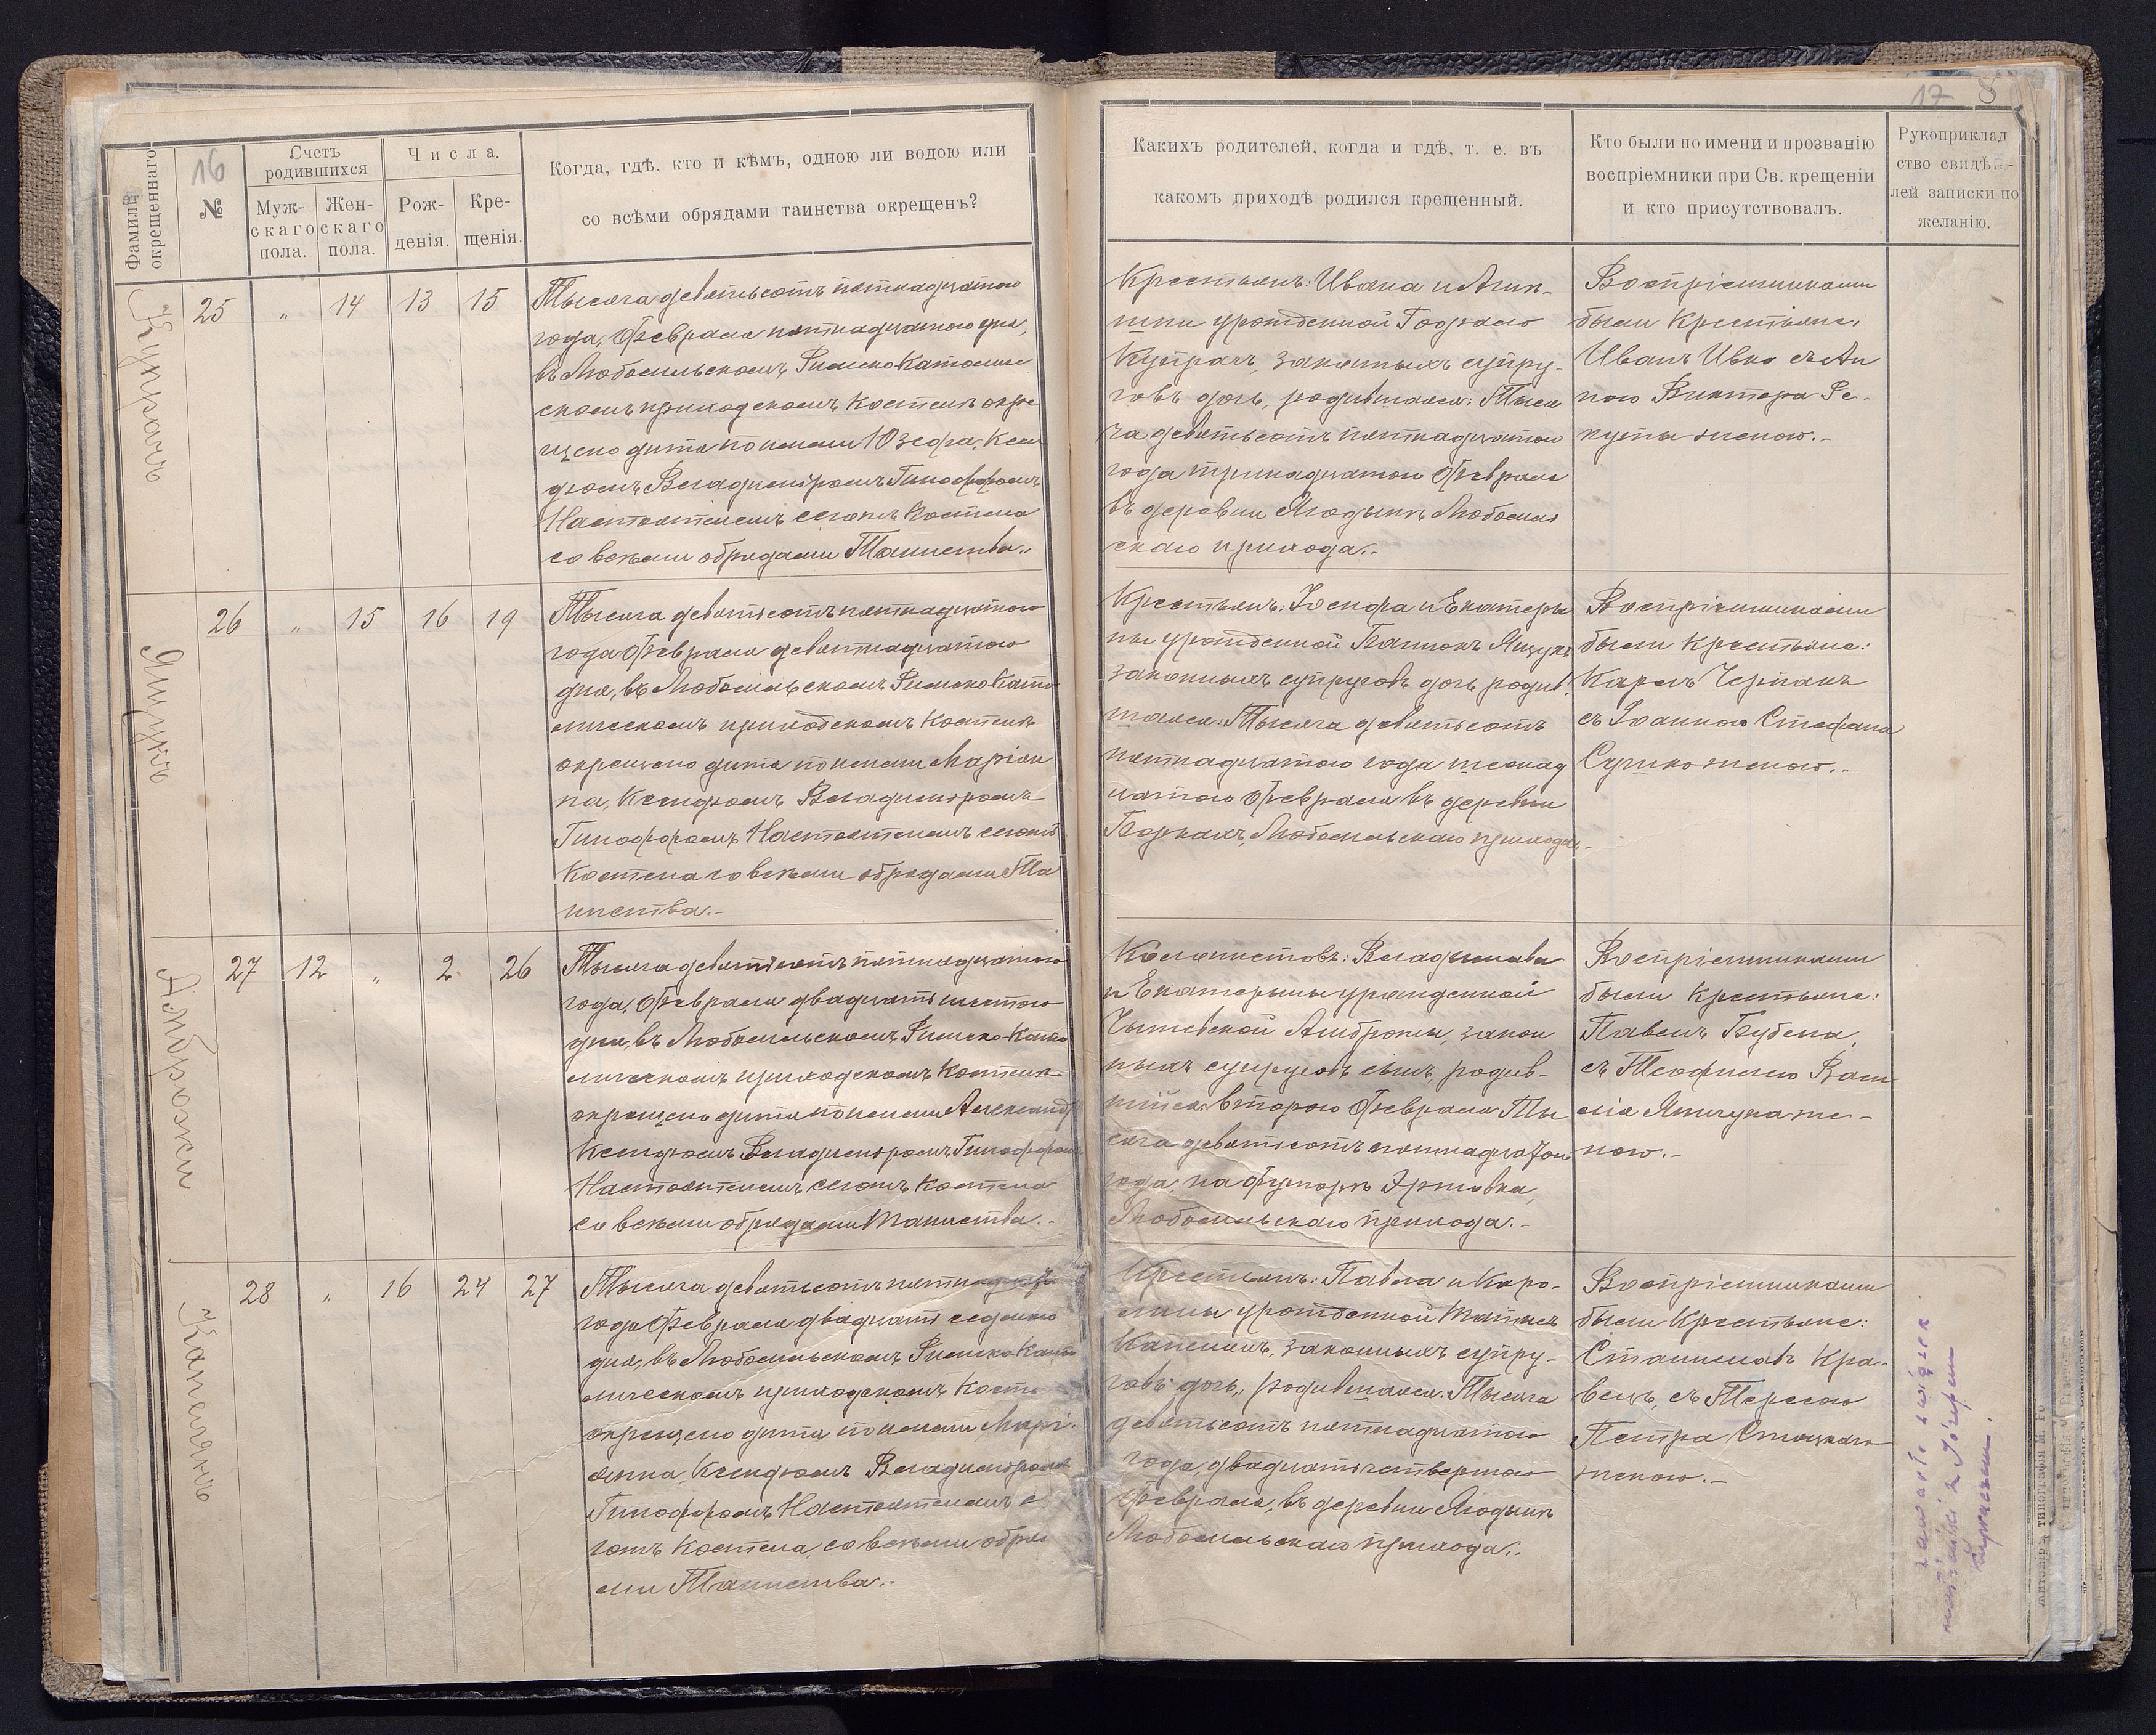 17 8
Фамилія окрещеннаго
16
№
Счетъ родившихся
Муж-
скаго
пола.
Жен-
скаго
пола.
Числа.
Рож-
денія.
Кре-
щенія.
Когда, гдѣ, кто и кѣмъ, одною ли водою или
со всѣми обрядами таинства окрещенъ?
Какихъ родителей, когда и гдѣ, т. е. въ
какомъ приходѣ родился крещенный.
Кто были по имени и прозванію
воспріемники при Св. крещеніи
и кто присутствовалъ.
Рукоприклад
ство свидѣ
лей записки по
желанію.
Купрачъ
25 „ 14 13 15
Тысяча девятьсотъ пятнадцатаго
года, Февраля пятнадцатаго дня,
въ Любомльскомъ Римско Католиче
скомъ приходскомъ Костелѣ окре
щено дитя по имени Юзефа, Ксен
дзомъ Владиміромъ Гиноффомъ
Настоятелемъ сегожъ Костела
со всѣми обрядами Таинства.
Крестьянъ: Ивана и
урожденной
Купрачъ, законныхъ супру-
говъ дочь, родившаяся: Тыся
ча девятьсотъ пятнадцатаго
года тринадцатаго Февраля
въ деревни Ягодынѣ, Любомль
скаго прихода.-
Воспріемниками
были Крестьяне:
Иванъ Ивко съ Ан
ною Виктора Ре-
куты женою.-
Ящукъ
26 „ 15 16 19
Тысяча девятьсотъ пятнадцатаго
года Февраля девятнадцатаго
дня, въ Любомльскомъ Римско Като
лическомъ приходскомъ Костелѣ
окрещено дитя по имени Маріан
на, Ксендзомъ Владиміромъ
Гиноффомъ, Настоятелемъ сегожъ
Костела со всѣми обрядами Та
инства.-
Крестьянъ: Іосифа и Екатеры
ны урожденной Ящукъ
законныхъ супруговъ дочь родив
шаяся: Тысяча девятьсотъ
пятнадцатаго года шеснад
цатаго Февраля въ деревни
Боркахъ, Любомльскаго прихода.-
Воспріемниками
были Крестьяне:
Карлъ Черпакъ
съ Іоанною Стефана
Сушко женою.-
Амброжки
27 12 „ 2 26
Тысяча девятьсотъ пятнадцатаго
года, Февраля двадцать шестого
дня, въ Любомльскомъ Римско-Като
лическомъ приходскомъ Костелѣ
окрещено дитя по имени Александр
Ксендзомъ Владиміромъ Гиноффом
Настоятелемъ сегожъ Костела
со всѣми обрядами Таинства.-
Колонистовъ: Владислава
и Екатерыны урожденной
Амброжы, закон
ныхъ супруговъ сынъ, родив-
шійся: второго Февраля Ты
сяча девятьсотъ пятнадцатаго
года, на футорѣ
Любомльскаго прихода.-
Воспріемниками
были Крестьяне:
Павелъ Бубела,
съ Теофилею Васи
лія Ящука же-
ною.-
Капелянъ
28 „ 16 24 27
Тысяча девятьсотъ пятнадца
года Февраля двадцать седьмого
дня, въ Любомльскомъ Римско Като
лическомъ приходскомъ Косте
окрещено дитя по имени Марі-
анна, Ксендзомъ Владиміромъ
Гиноффомъ Настоятелемъ се
гожъ Костела, со всѣми обряд
ми Таинства.-
Крестьянъ: Павла и Каро-
лины урожденной
Капелянъ, законныхъ супру-
говъ дочь, родившаяся: Тысяча
девятьсотъ пятнадцатаго
года, двадцать четвертаго
Февраля, въ деревни Ягодынѣ
Любомльскаго прихода.-
Воспріемниками
были Крестьяне:
Станиславъ Кра-
вецъ, съ Тересою
Петра
женою.-
zawarła związek
małżeński z Józefem